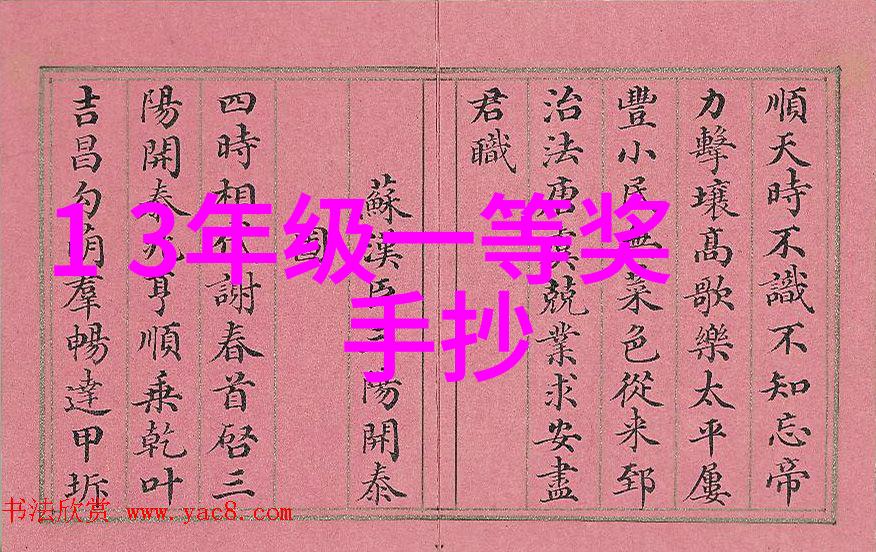 順天時不識不知忘帝
力擊壤高歌樂太平屢
豐小民無菜色從來郅
治法唐虞兢業求安盡
君職
蘇漢臣三陽開泰
圖
四時相代謝春首啓三
陽開泰元亨順乘乾叶
吉昌勾萌羣暢達甲坼
1 3年级一等奖
手抄
书法欣赏 www.yac8.com